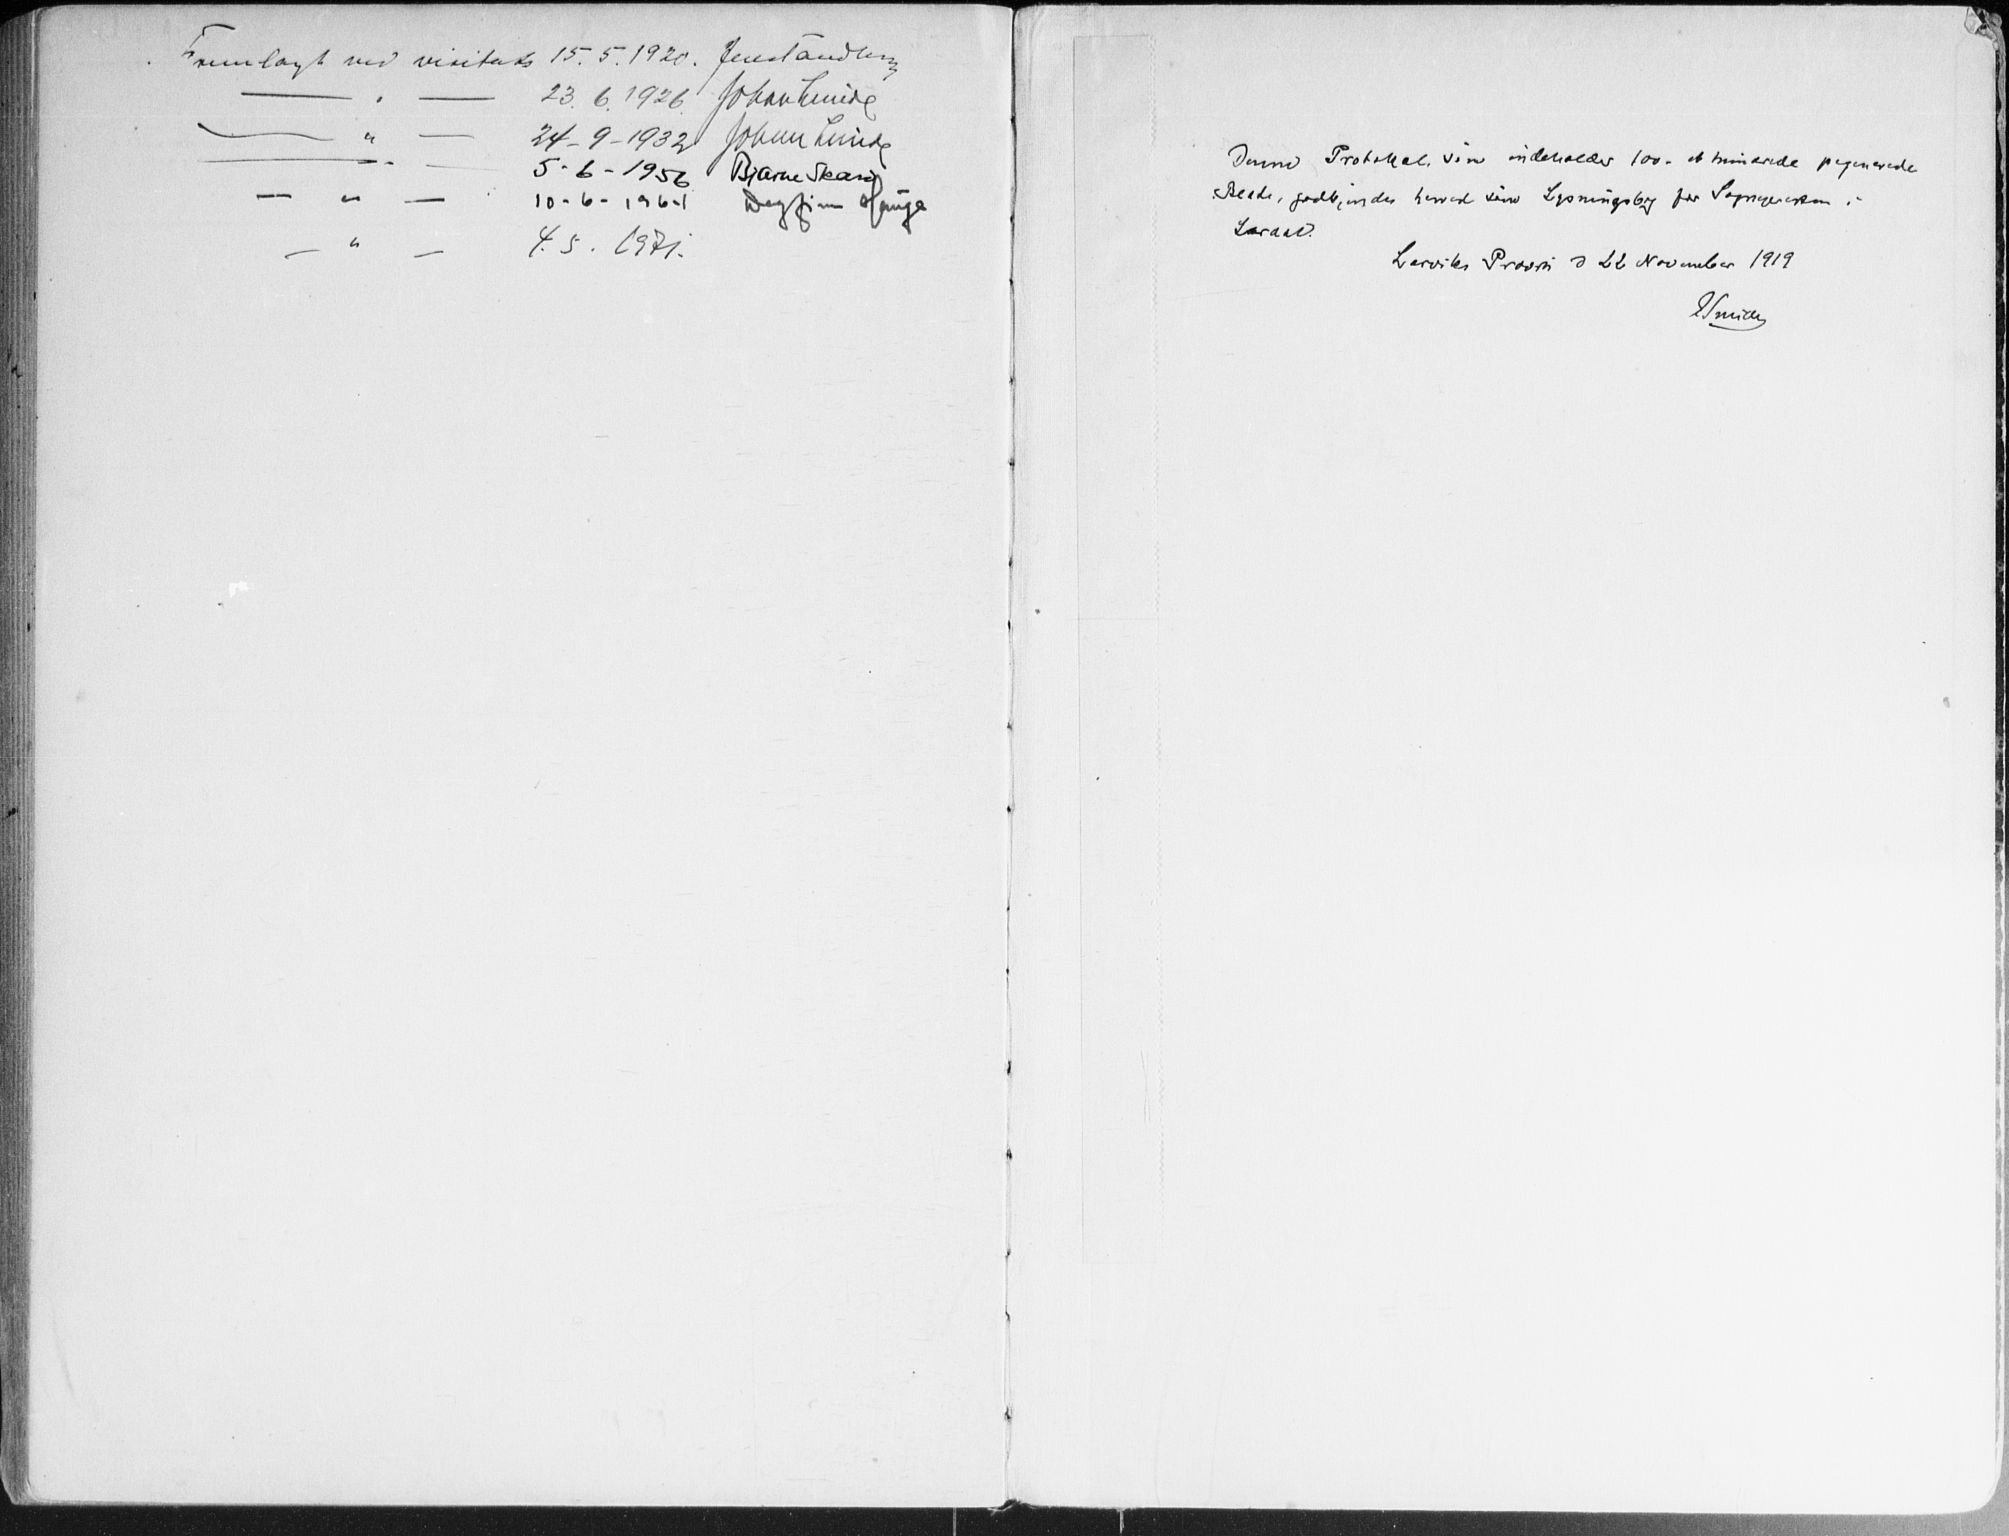 Fremlagt ved visitats 15.5.1920. Jens Tandberg
— " — 23.6.1926 Johan Lunde
— " — 24-9-1932 Johan Lunde
— " — 5-6-1956 Bjarne Skard
— " — 10-6-1961 Dagfinn Hauge
— " — 4.5.1971.
Denne Protokol, som indeholder 100 - et hundrede paginerede
Blade, godkjendes herved som Lysningsbog for Sognepresten i
Lardal.
Larviks Provsti d 22 November 1919